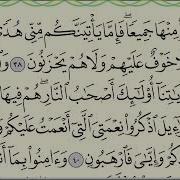 مِنْهَا جَمِيعًا ۖ فَإِمَّا يَأْتِيَنَّكُم مِّنِّي هُدًى
خَوْفٌ عَلَيْهِمْ وَلَا هُمْ يَحْزَنُونَ ٣٨ وَا
يَٰتِنَآ أُو۟لَٰٓئِكَ أَصْحَٰبُ ٱلنَّارِ ۖ هُمْ فِيهَا
ءِيلَ ٱذْكُرُوا۟ نِعْمَتِيَ ٱلَّتِيٓ أَنْعَمْتُ عَلَيْكُمْ وَ
كُمْ وَإِيَّٰيَ فَٱرْهَبُونِ ٤٠ وَءَامِنُوا۟ بِمَآ أَنـ